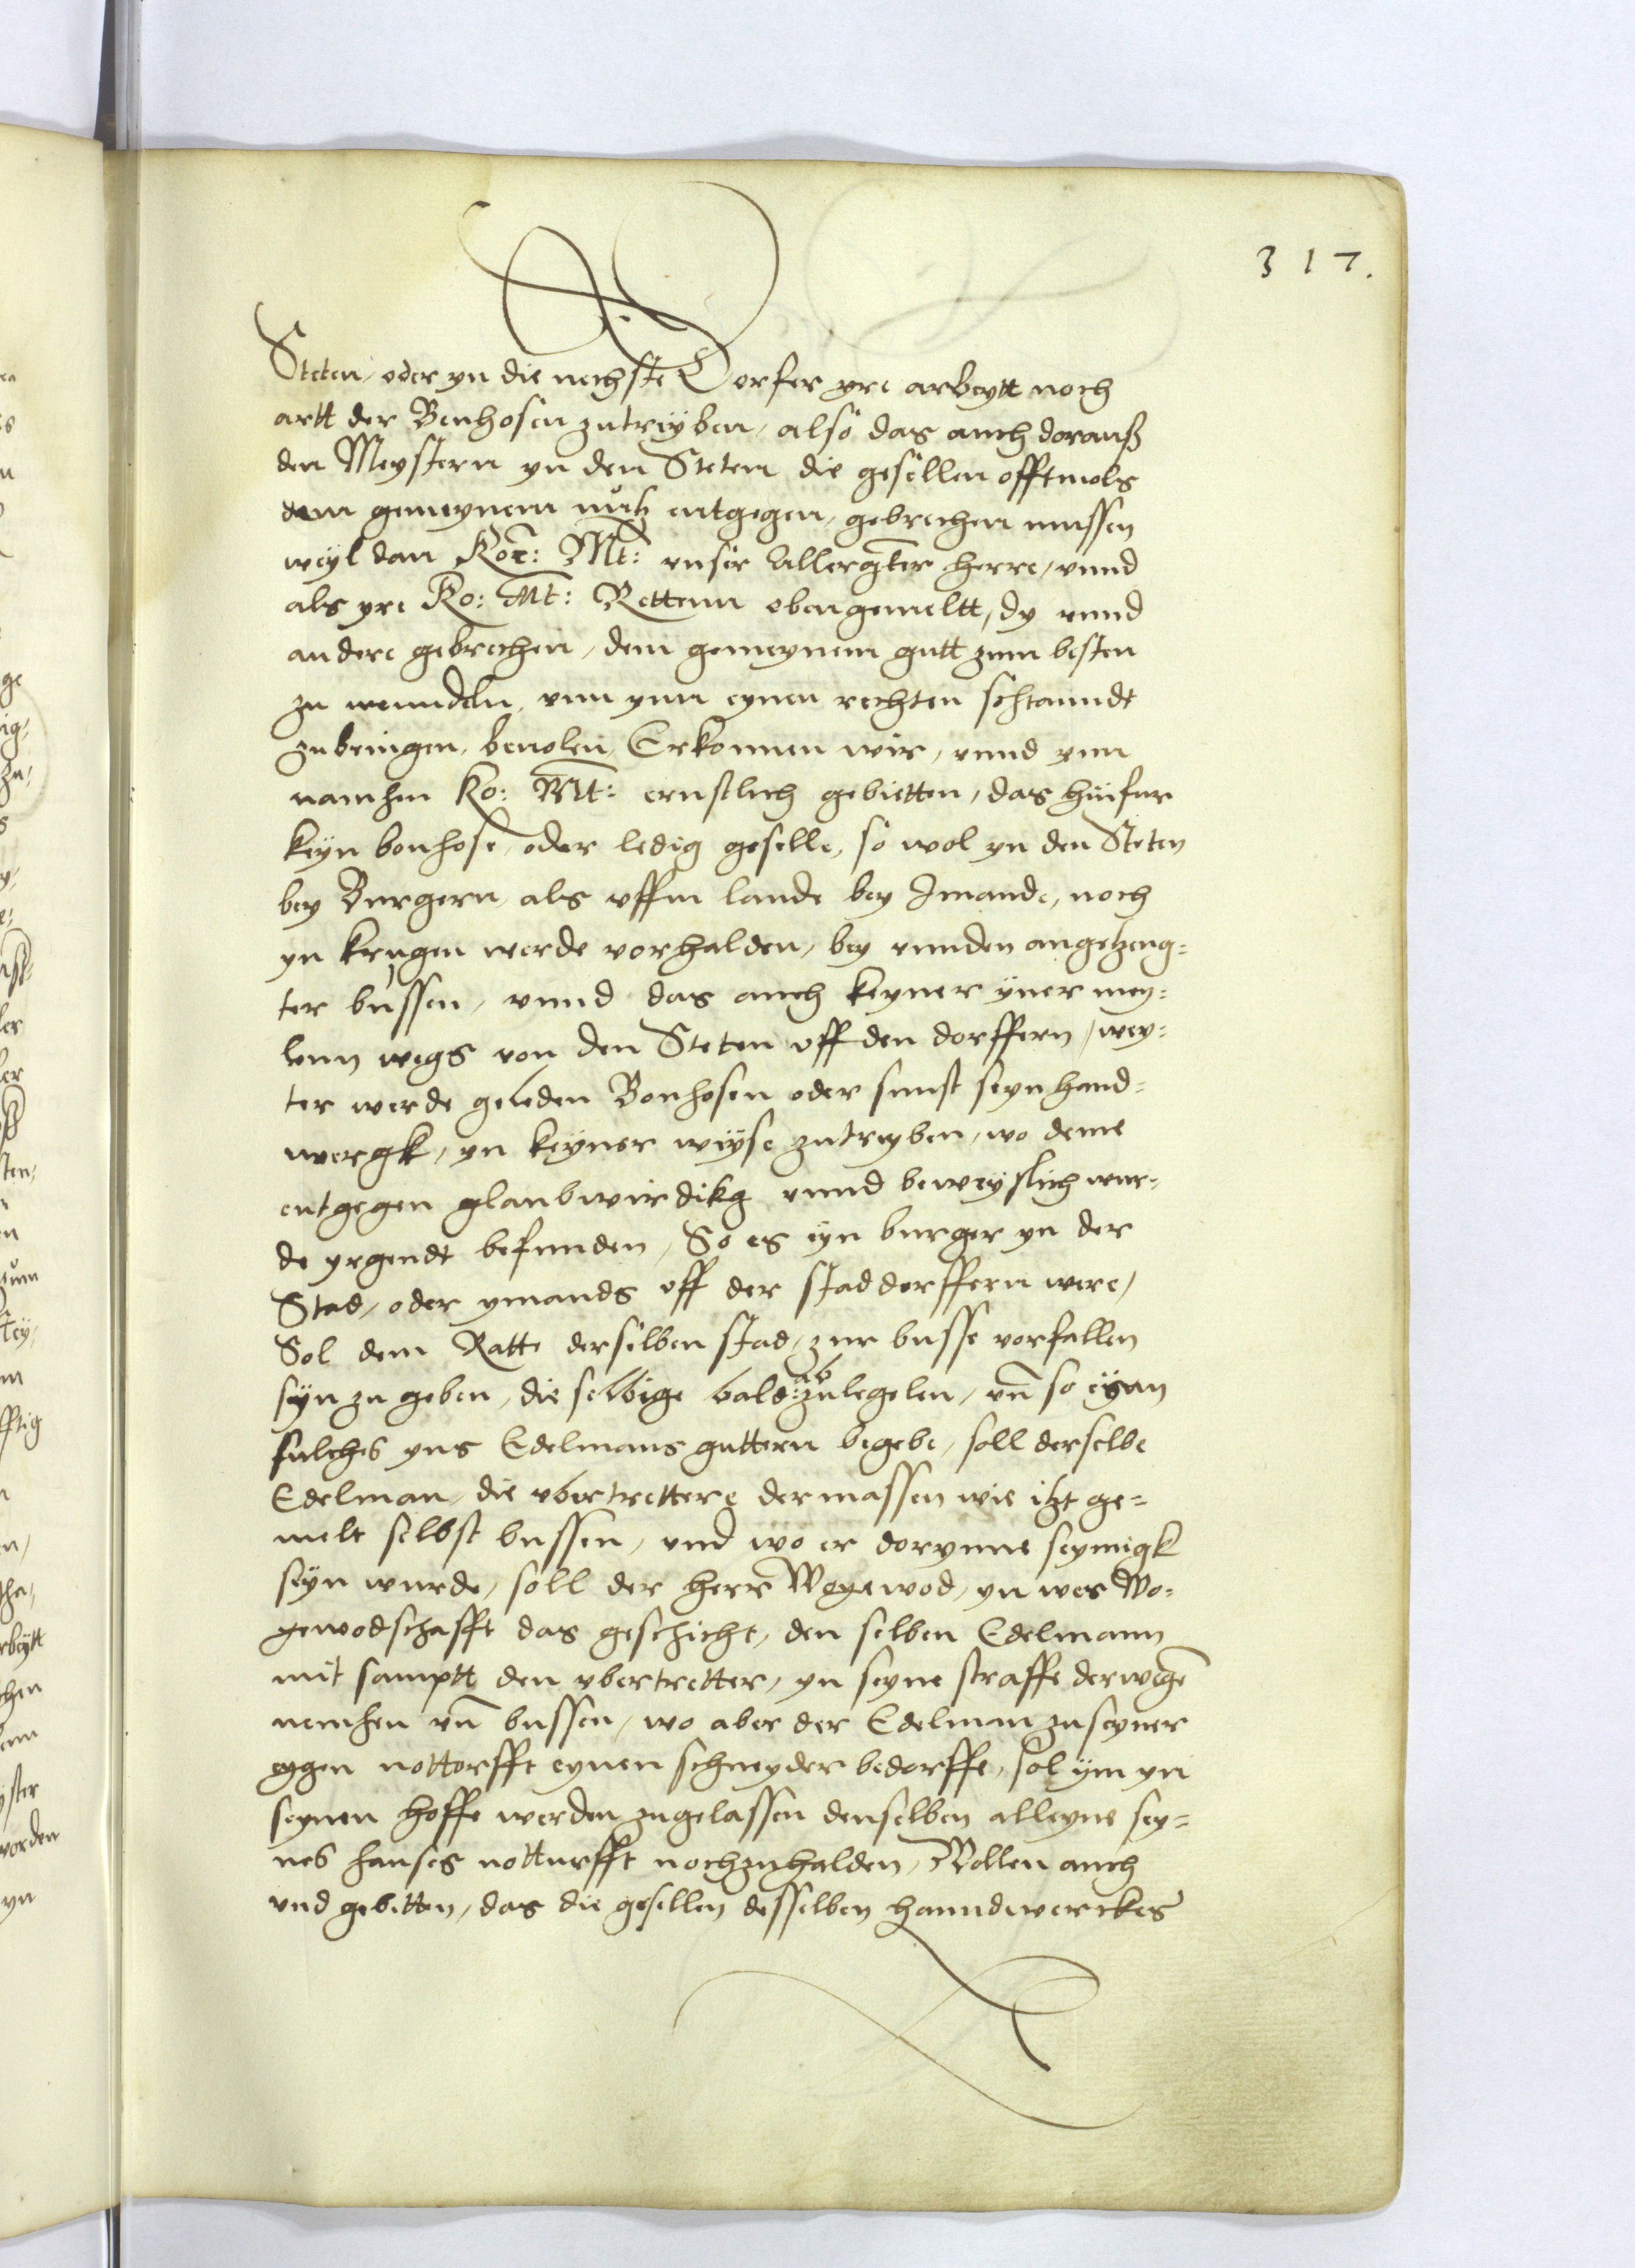 317.
Steten, oder yn die nechste Dorfer yre arbeytt noch
artt der Benhosen zutreyben, also das auch dorauß
den Meystern yn den Steten die gesellen offtmols
dem gemeynem nutz entgegen, gebrechen mussen
weyl dan Kor: Mt: unser Allergter herre, unnd
als yre Ko: Mt: Rettenn obengemeltt, dy unnd
andere gebrechen, dem gemeynem gutt zum besten
zu wenndeln, unn ynn eynen rechten schtanndt
zubringen, bevolen, Erkonnen wir, unnd ynn
namhen Ko: Mt: ernstlich gebietten, das hinfur
keyn bonhose, oder ledig geselle, so wol yn den Steten
bey Burgern, als uffm lande bey Imande, noch
yn krugen werde vorhalden, bey unnden angetzeig=
ter bussen, unnd das auch keyner yner mey=
lenn wegs von den Steten uff den dorffern, wey=
ter werde geleden Bonhosen oder sunst seyn hand=
wergk, yn keyner weyse zutreyben, wo deme
entgegen glaubwirdikg unnd beweyslich wur=
de yrgendt befunden, So es eyn burger yn der
Stad, oder ymands uff der stad dorffern were,
Sol dem Ratte derselben stad, zur busse vorfallen
seyn zu geben, die selbige bald ab zulegelen, un so
sulches yns Edelmans guttern begebe, soll derselbe
Edelman, die ubertrettere dermassen wie itzt ge=
melt selbst bussen, und wo er dorynne seymigk
seyn wurde, soll der herr Woyewod, yn wes Wo=
yewodschafft das geschicht, den selben Edelmann
mit samptt den ubertretter, yn seyne straffe derwege
nemhen un bussen, wo aber der Edelman zu seyner
eygen nottorfft eynen schneyder bedorffe, sol ym yn
seynen hoffe werden zugelassen denselben alleyne sey=
nes hauses notturfft nochzuhalden, Wollen auch
und gebitten, das die gesellen desselben hanndwerckes